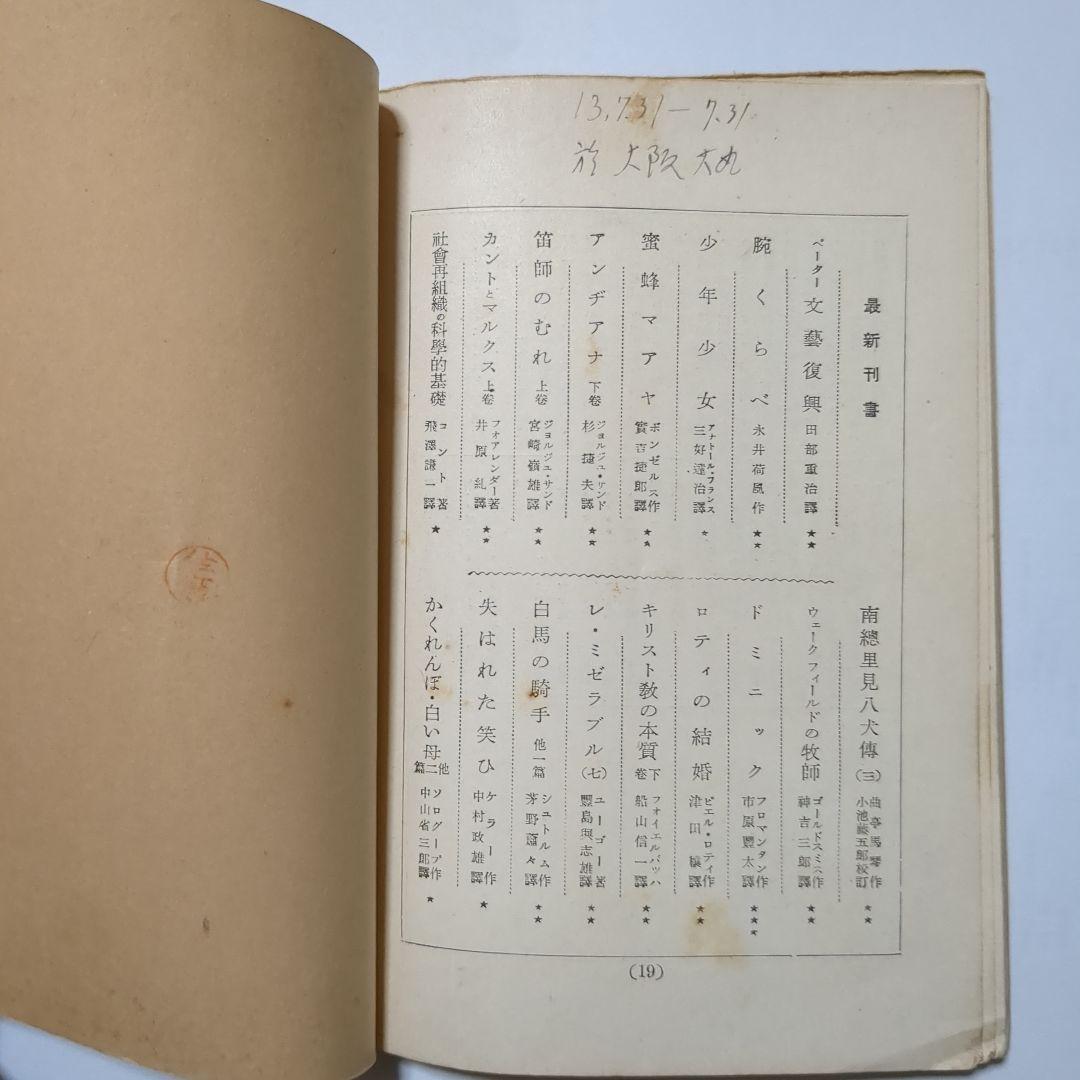 13.7.31－7.31
於 大阪大丸
最新刊書
ペーター 文藝復興 田部重治譯 ★★
腕くらべ 永井荷風作 ★★
少年少女 アナトール・フランス 三好達治譯 ★
蜜蜂マアヤ ボンゼルス作 實吉捷郎譯 ★★
アンヂアナ 下卷 ジョルジュ・サンド 杉捷夫譯 ★★
笛師のむれ 上卷 ジョルジュ・サンド 宮崎嶺雄譯 ★★
カントとマルクス 上卷 フォアレンダー著 井原糺譯 ★★
社會再組織の科學的基礎 コント著 飛澤謙一譯 ★
南總里見八犬傳(三) 曲亭馬琴作 小池藤五郎校訂 ★★
ウェークフィールドの牧師 ゴールドスミス作 神吉三郎譯 ★★
ドミニック フロマンタン作 市原豐太譯 ★★★
ロティの結婚 ピエル・ロティ作 津田穰譯 ★★
キリスト教の本質 下卷 フォイエルバッハ 船山信一譯 ★★
レ・ミゼラブル(七) ユーゴー著 豐島與志雄譯 ★★
白馬の騎手 他一篇 シュトルム作 茅野蕭々譯 ★★
失はれた笑ひ ケラー作 中村政雄譯 ★
かくれんぼ・白い母 他二篇 ソログーブ作 中山省三郎譯 ★
(19)